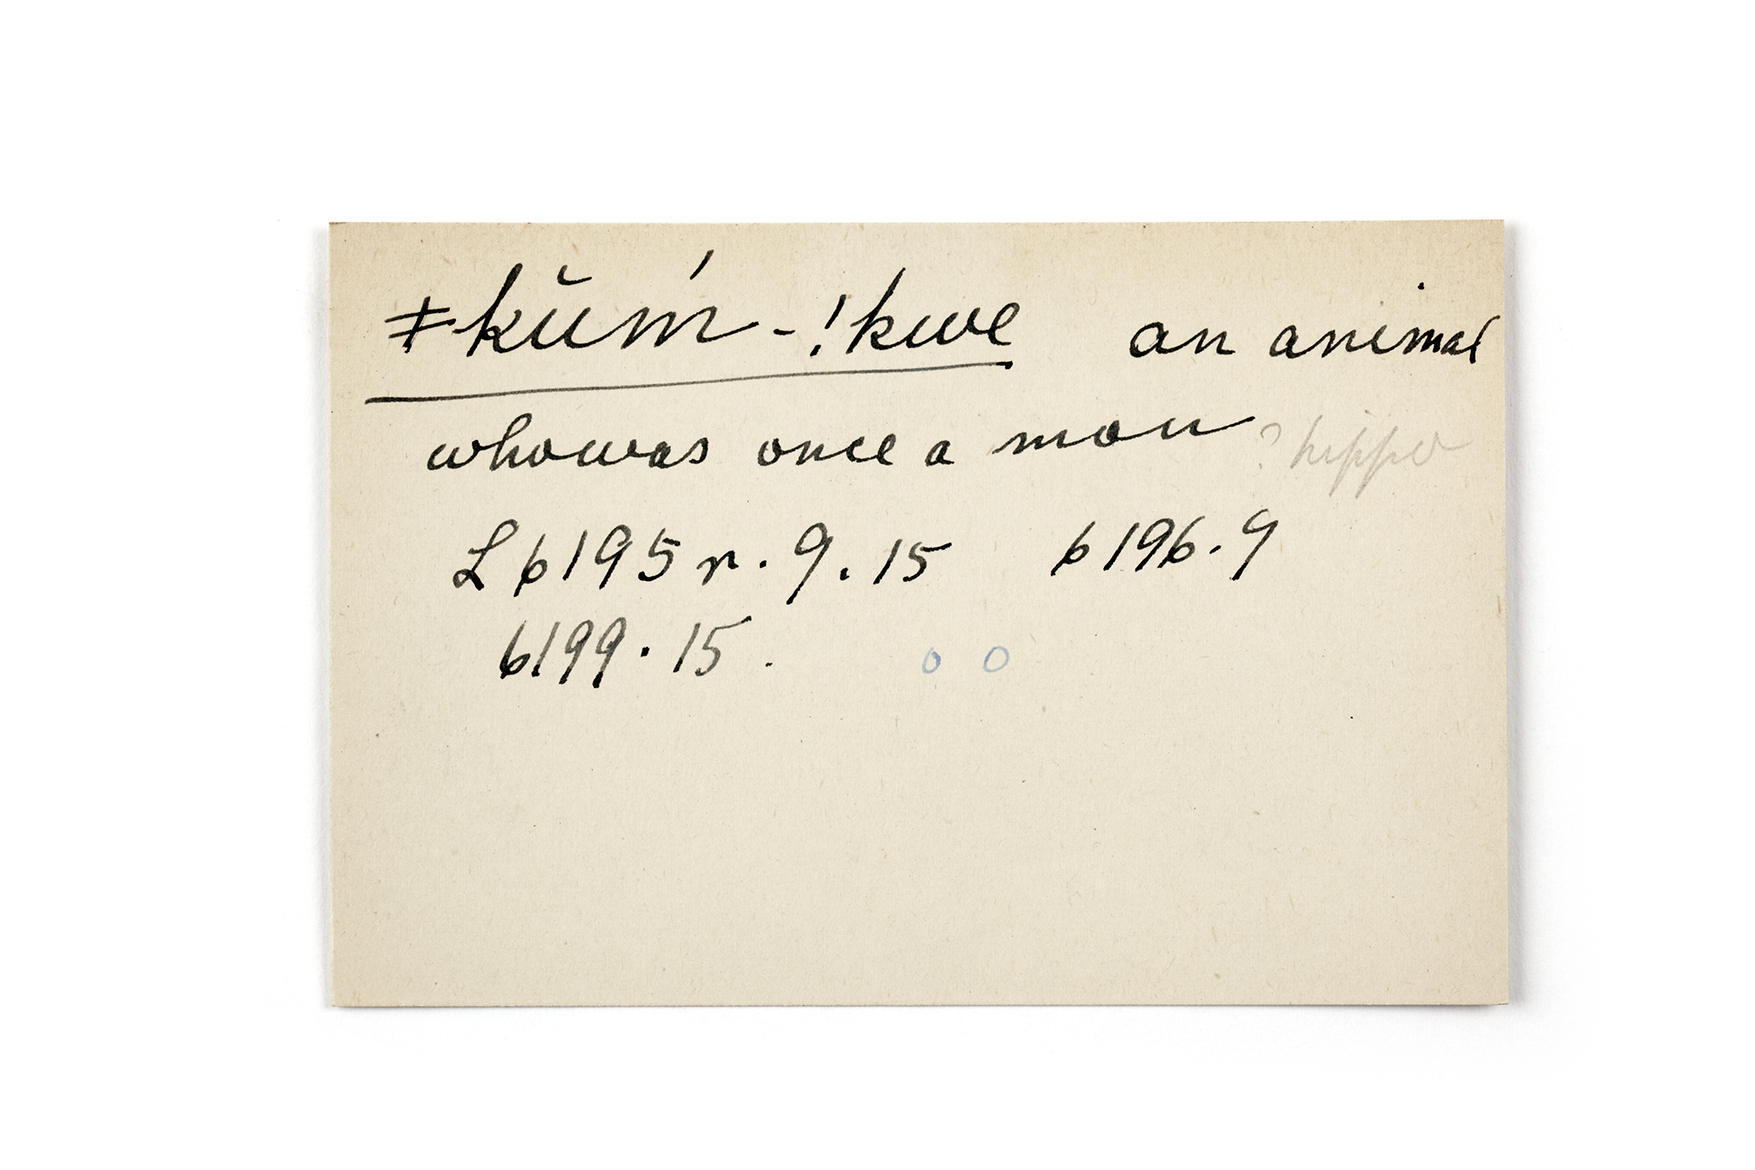 ǂkŭḿ-!kwe an animal
who was once a man ? hippo
L 6195 r. 9. 15 6196. 9
6199. 15.
o o